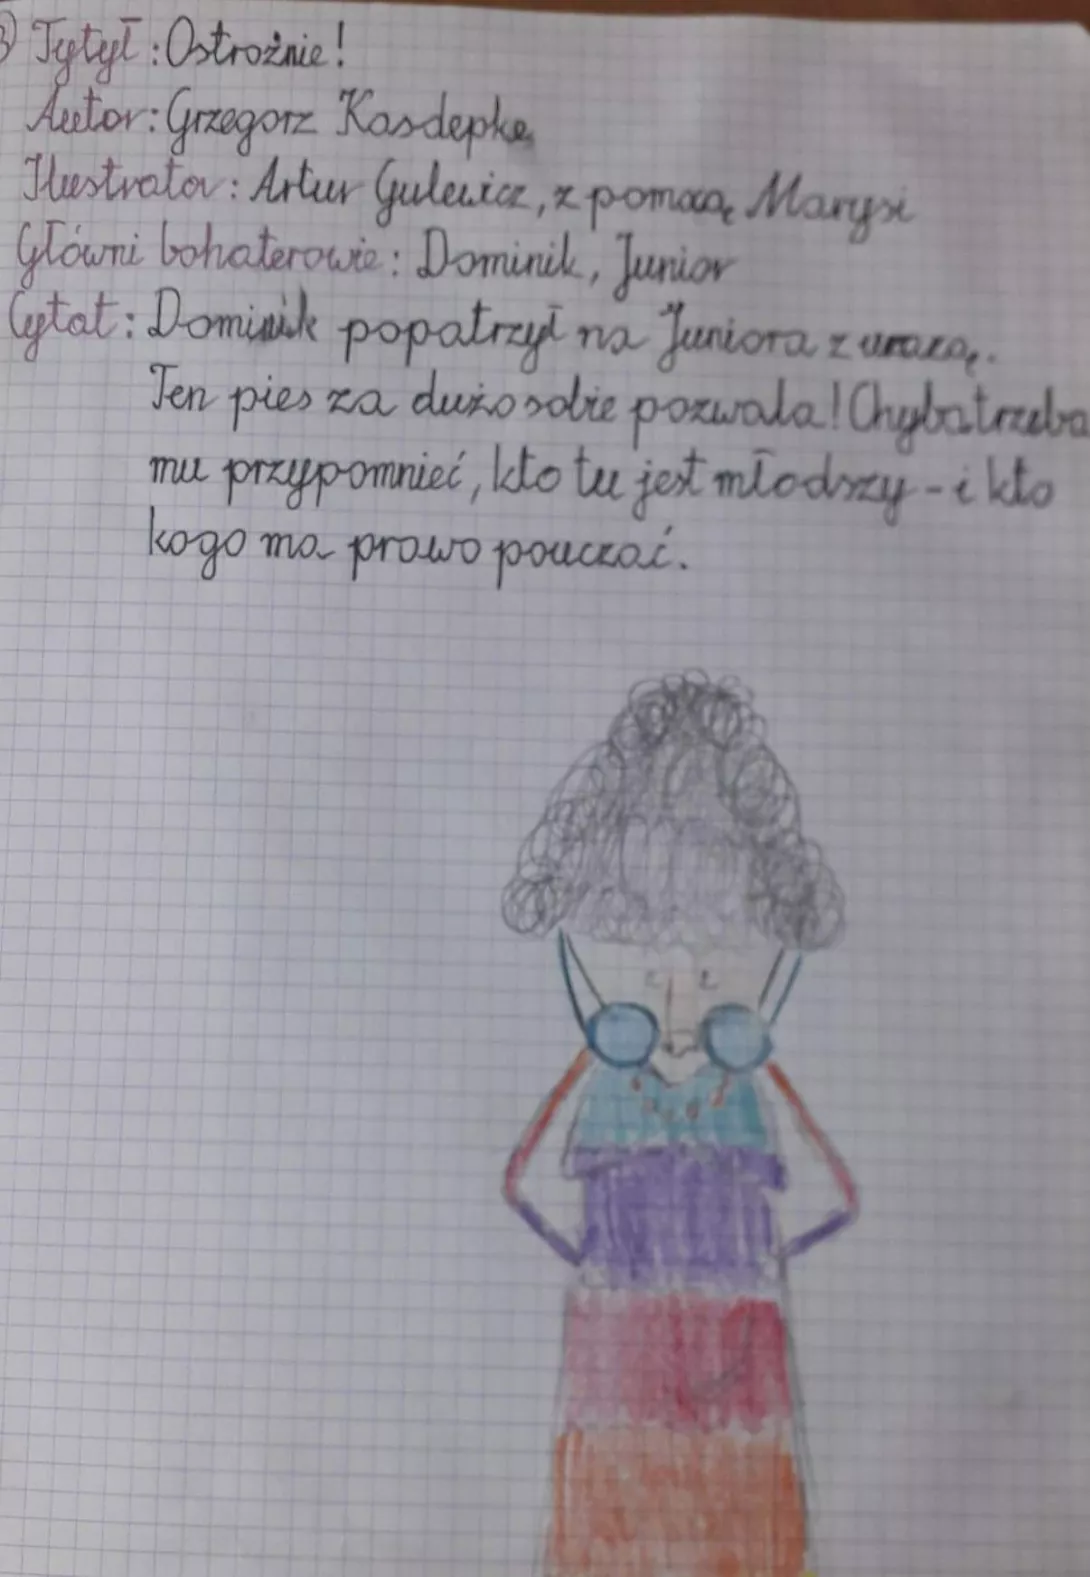 3) Tytył: Ostrożnie!
Autor: Grzegorz Kasdepke
Ilustrator: Artur Gulewicz, z pomocą Marysi
Główni bohaterowie: Dominik, Junior
Cytat: Dominik popatrzył na Juniora z urazą.
Ten pies za dużo sobie pozwala! Chyba trzeba
mu przypomnieć, kto tu jest młodszy - i kto
kogo ma prawo pouczać.